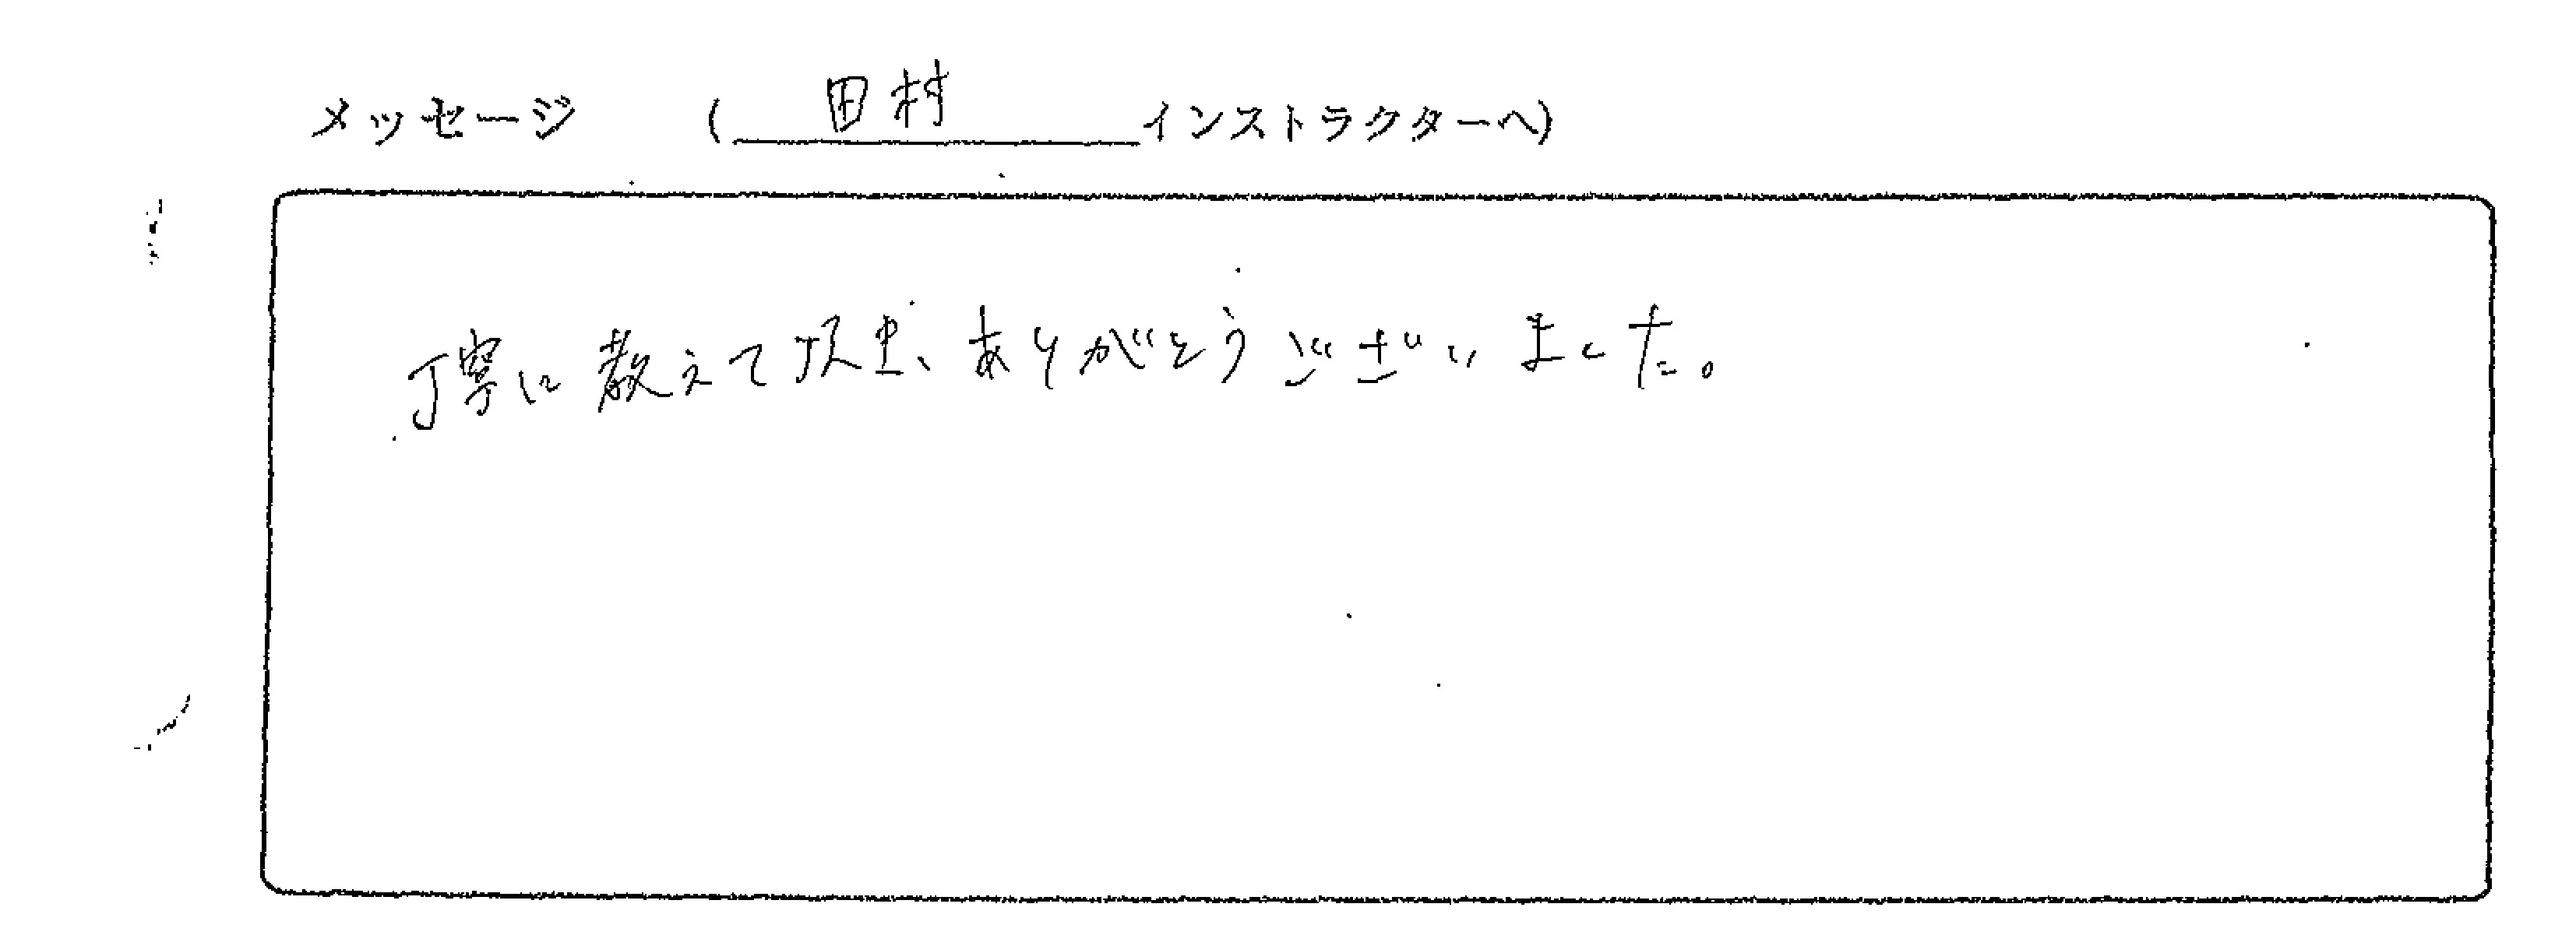 メッセージ (田村インストラクターへ)
丁寧に教えて頂き、ありがとうございました。